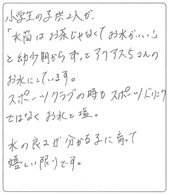 小学生の子供2人が、
「水筒はお茶じゃなくてお水がいい」
と幼少期からずっとアクアス5さんの
お水にしています。
スポーツクラブの時もスポーツドリンク
ではなくお水と塩。
水の良さが分かる子に育って
嬉しい限りです。